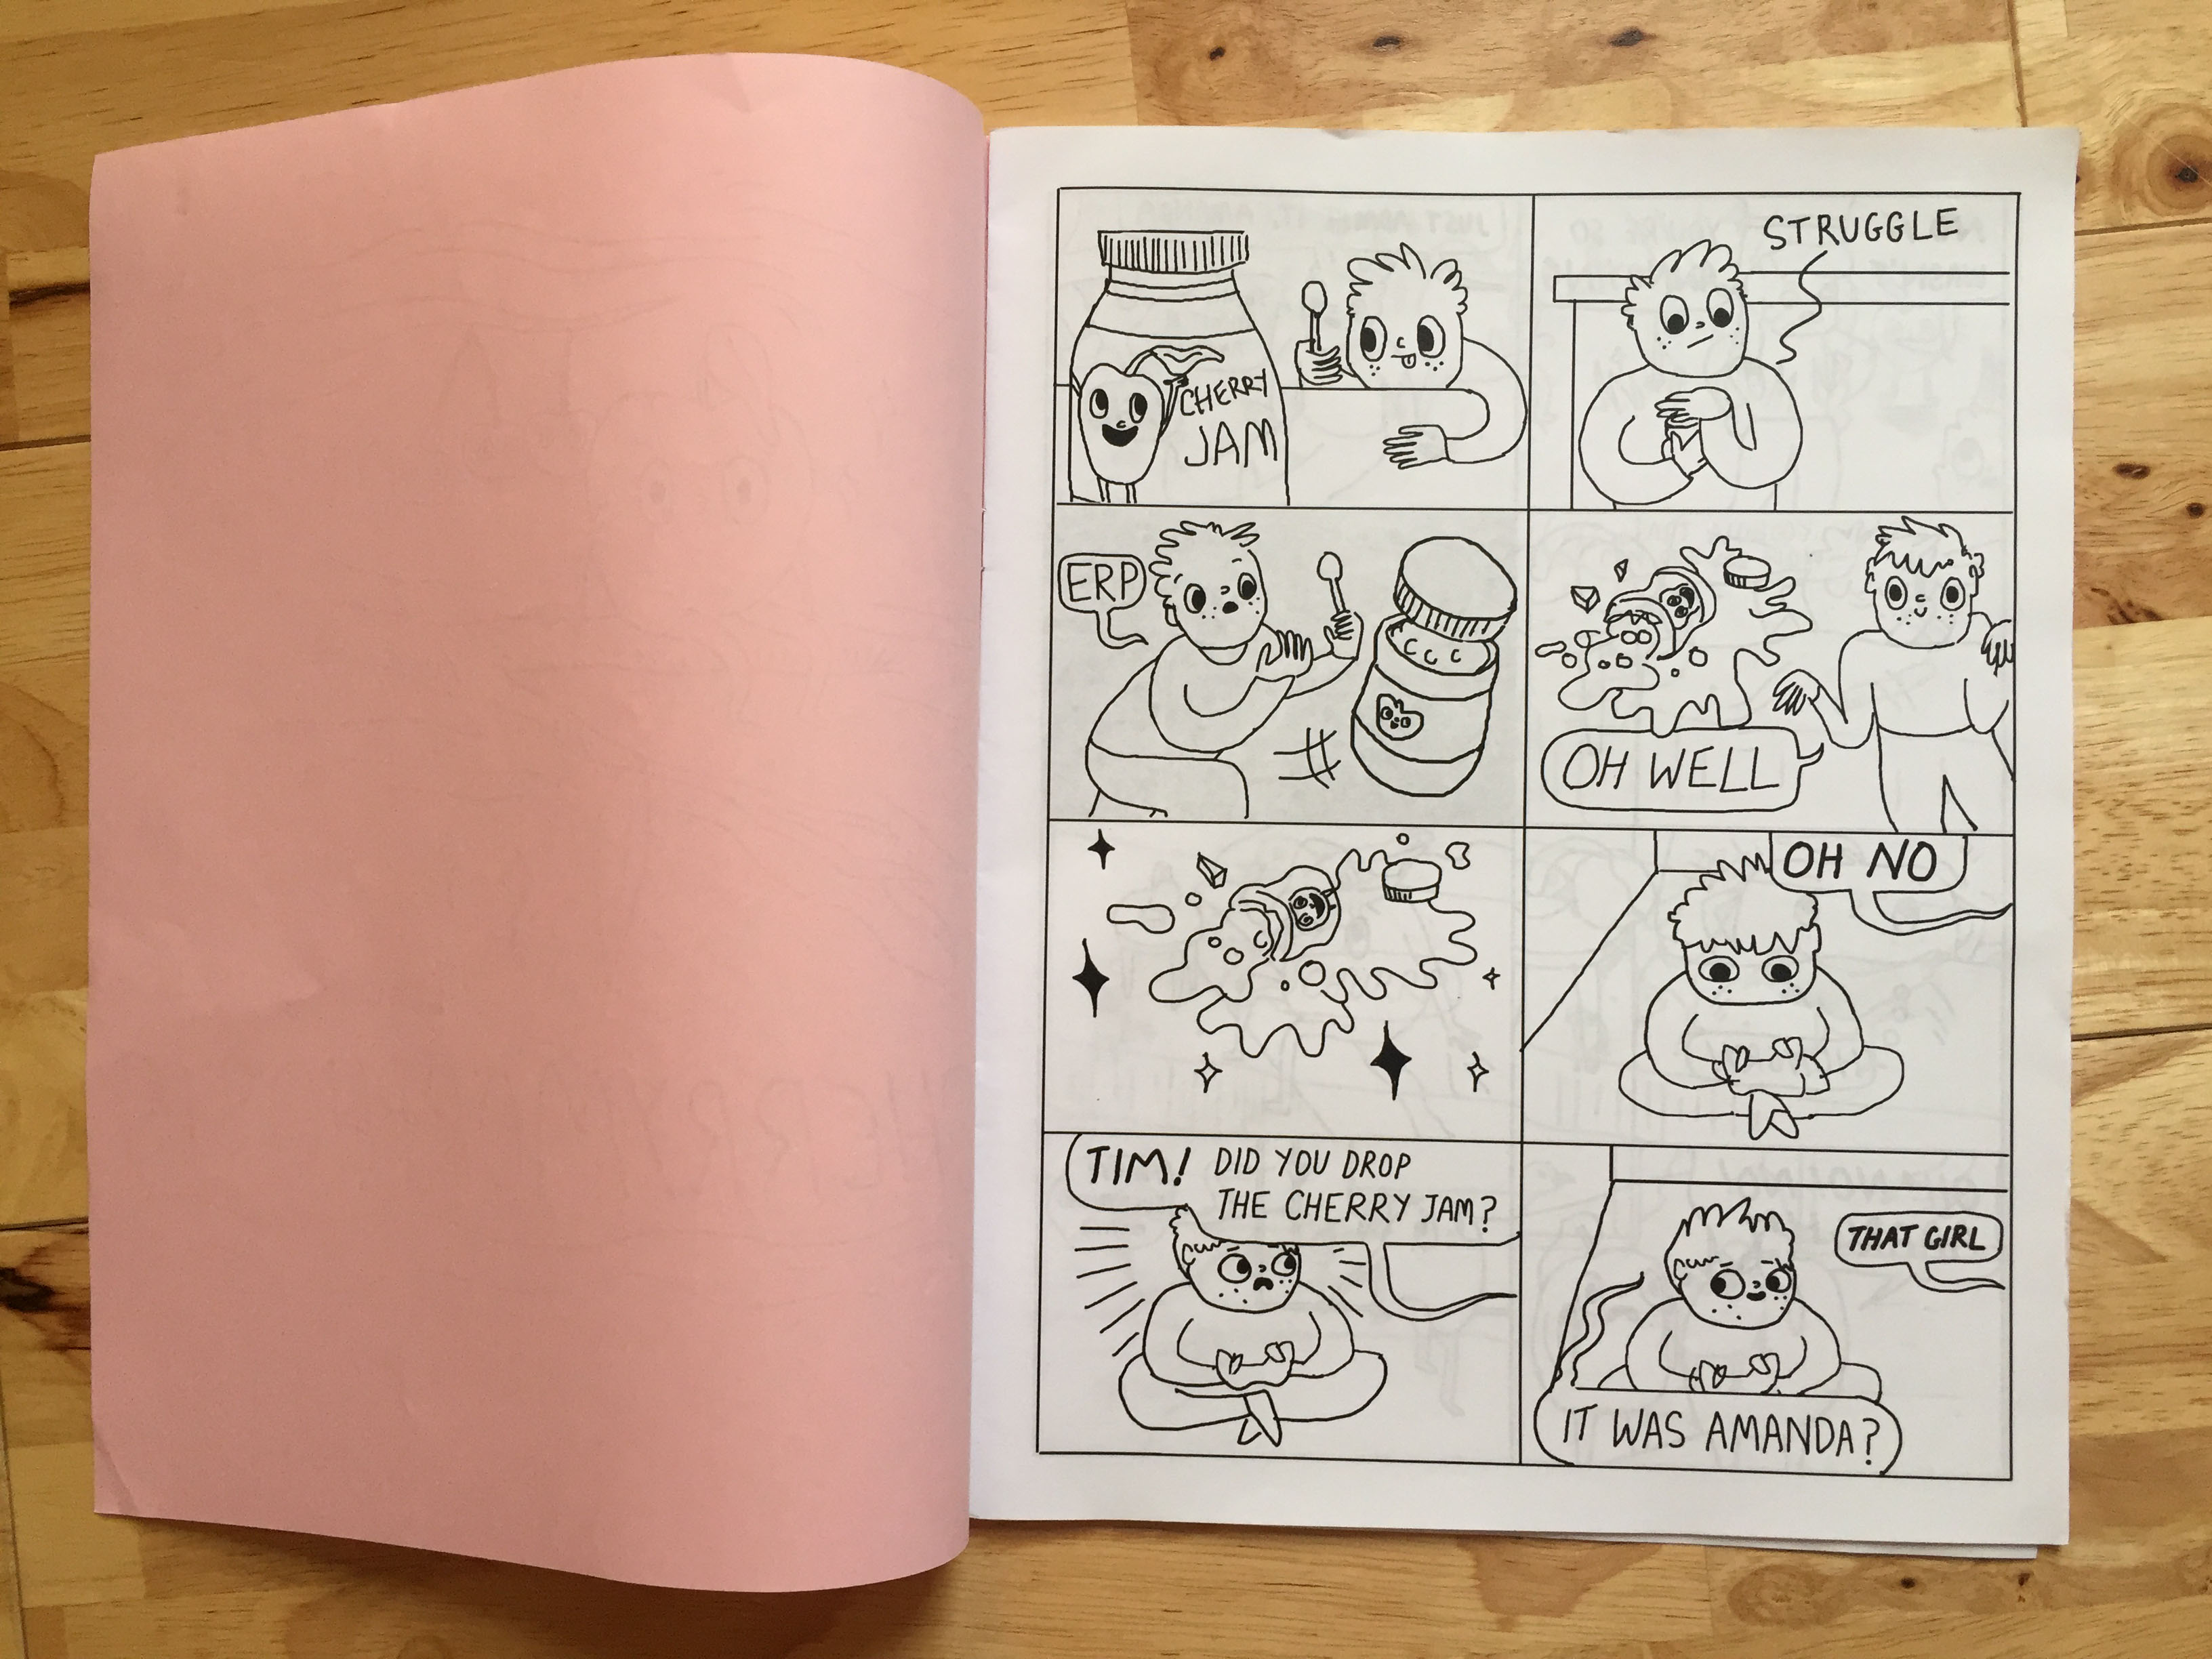 CHERRY
JAM
STRUGGLE
ERP
OH WELL
OH NO
TIM! DID YOU DROP
THE CHERRY JAM?
THAT GIRL
IT WAS AMANDA?